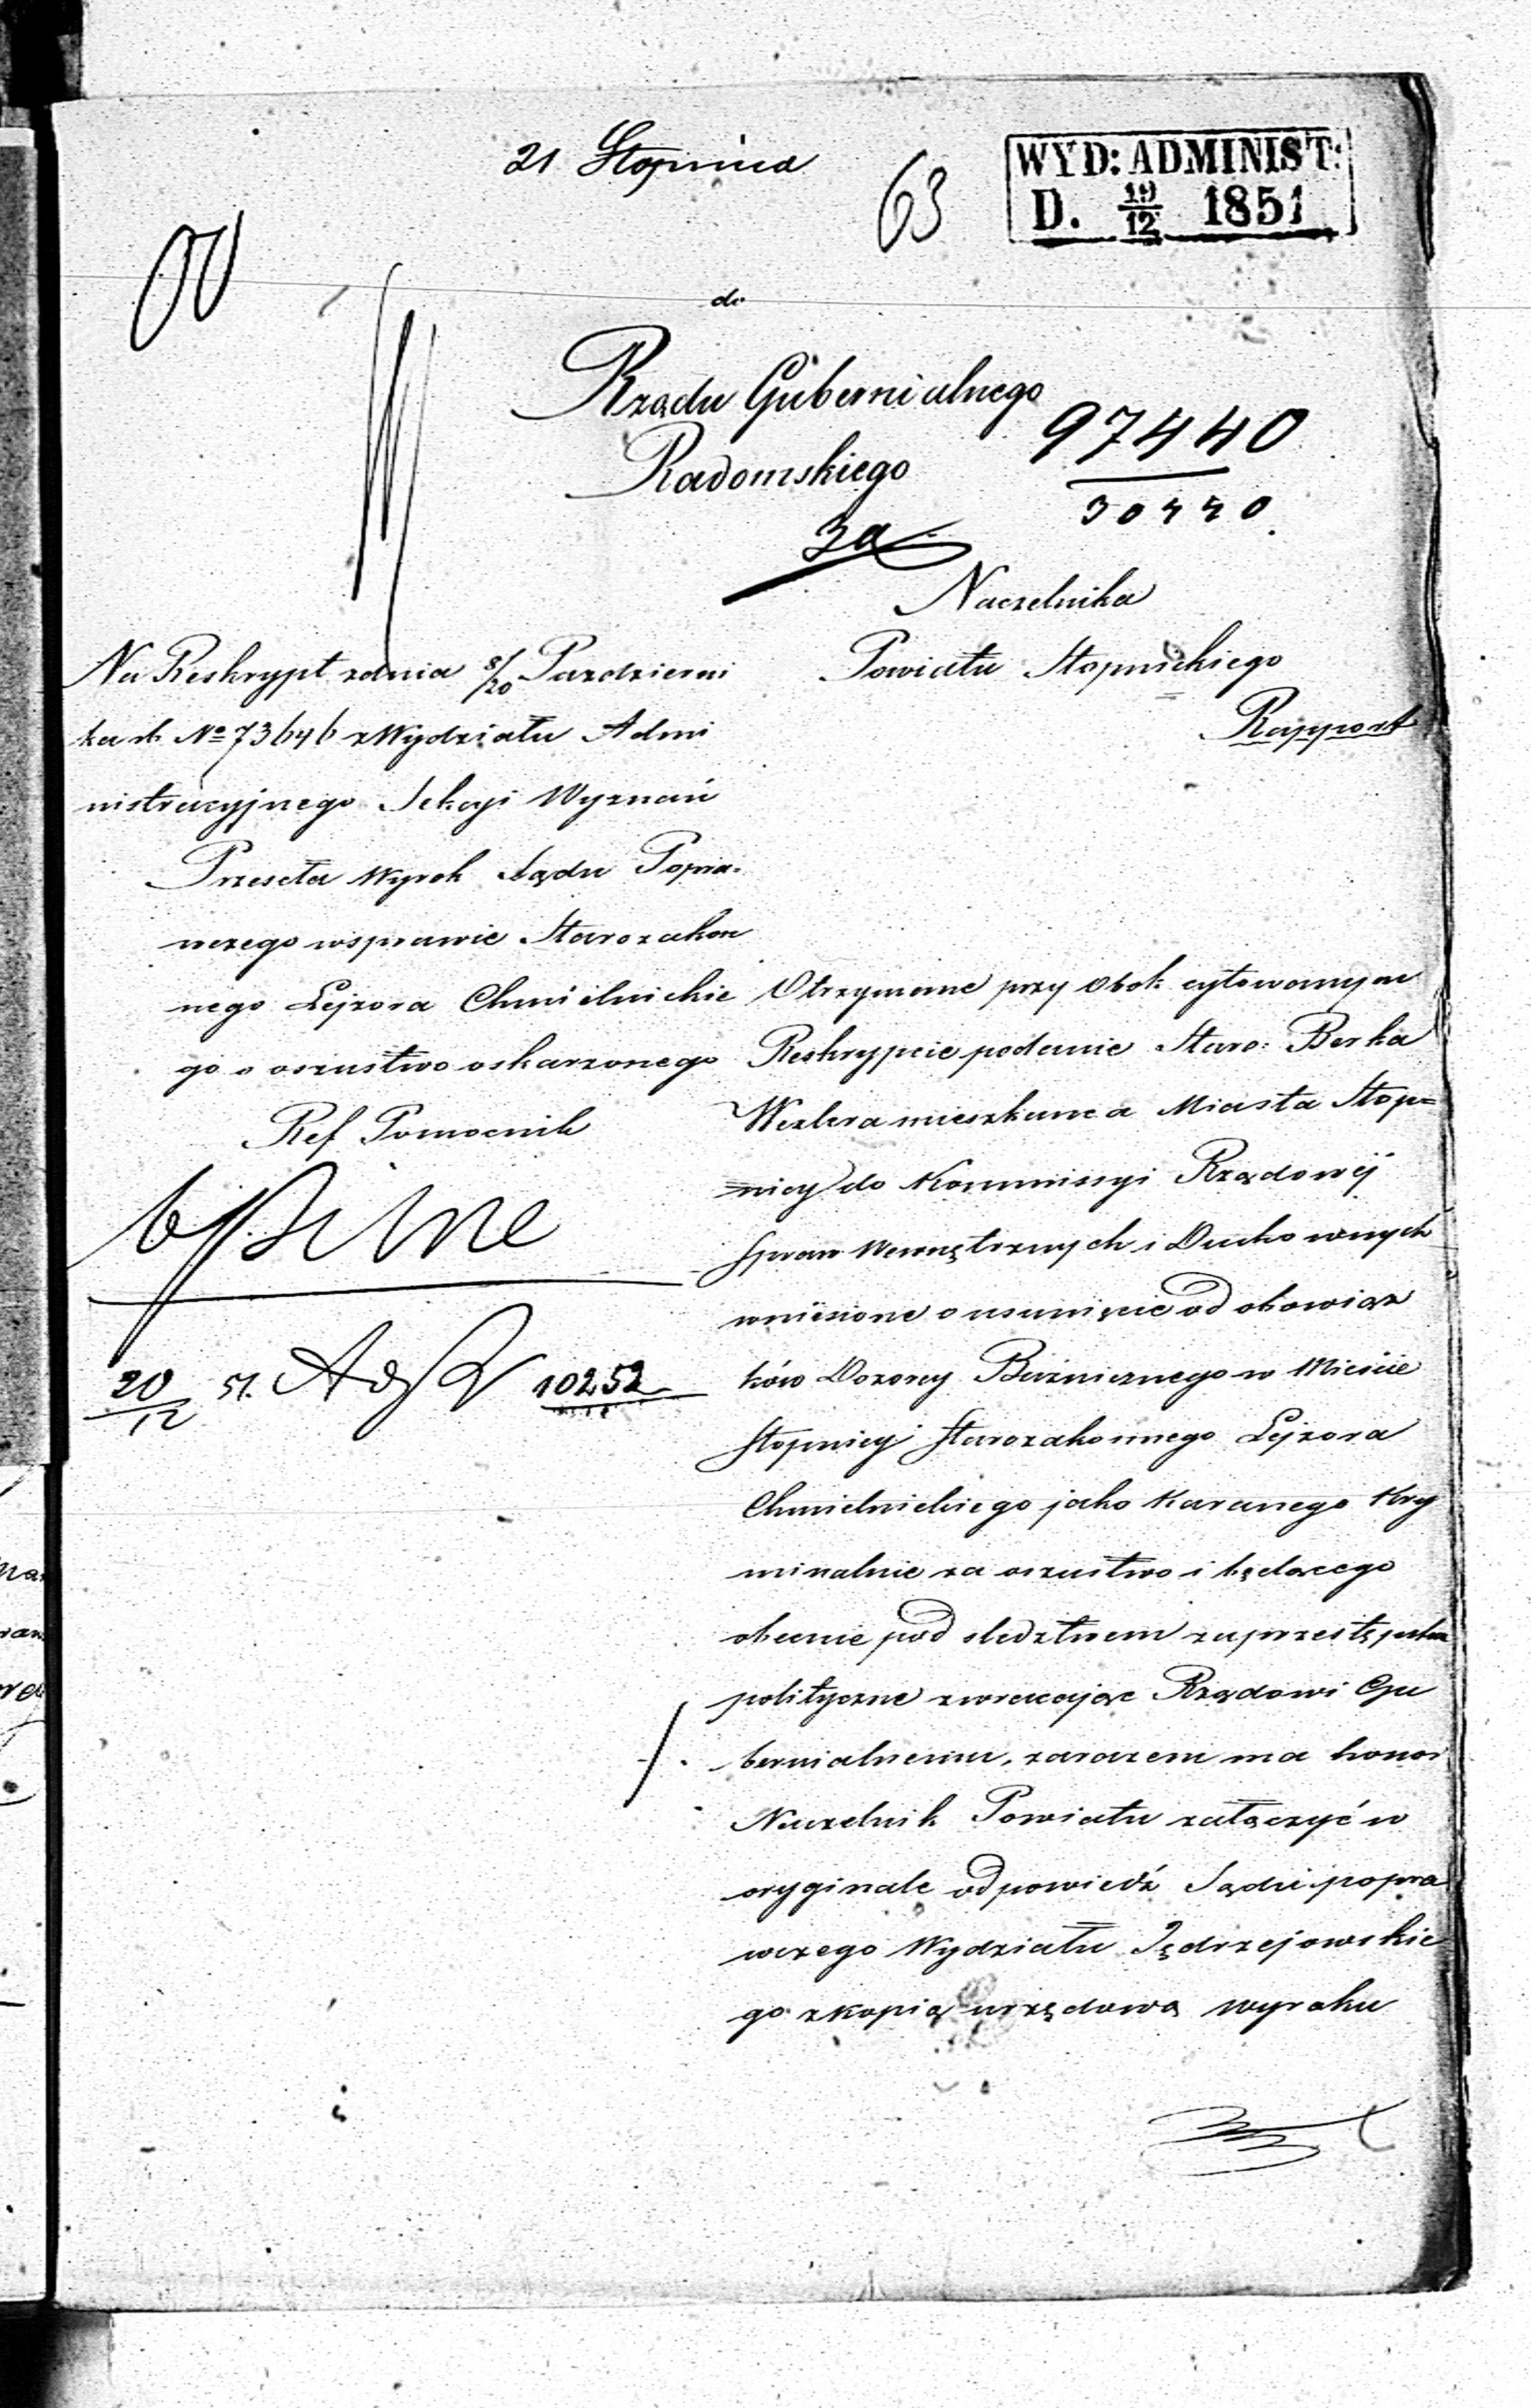 21 Stopnica
63
WYD: ADMINIST:
D. 19/12 1851
do
Rządu Gubernialnego
Radomskiego
97440
30440
3a
Naczelnika
Powiatu Stopnickiego
Rapport
Na Reskrypt zdnia 8/20 Pazdzierni
ka rb. No 73646 z Wydziału Admi
nistracyjnego Sekcyi Wyznań
Przeseła Wyrok Sądu Popra-
wczego wsprawie Starozakon
nego Lejzora Chmielnickie
go o oszustwo oskarzonego
Ref Pomocnik
20/12 51. 10252
Otrzymane przy obok cytowanym
Reskrypcie podanie Staro: Berka
Wexlera mieszkanca Miasta Stop=
=nicy do Kommissyi Rządowéj
Spraw Wewnętrznych i Duchownych
wniesione o usunięcie od obowiąz
ków Dozorcy Bużnicznego w Mieście
Stopnicy Starozakonnego Lejzora
Chmielnickiego jako Karanego Kry
minalnie za oszustwo i będącego
obecnie pod sledztwem za przestępstwa
polityczne zwracając Rządowi Gu
bernialnemu, zarazem ma honor
Naczelnik Powiatu załączyć w
oryginale odpowiedź Sądu popra
wczego Wydziału Jędrzejowskie
go z kopią urzędową wyroku